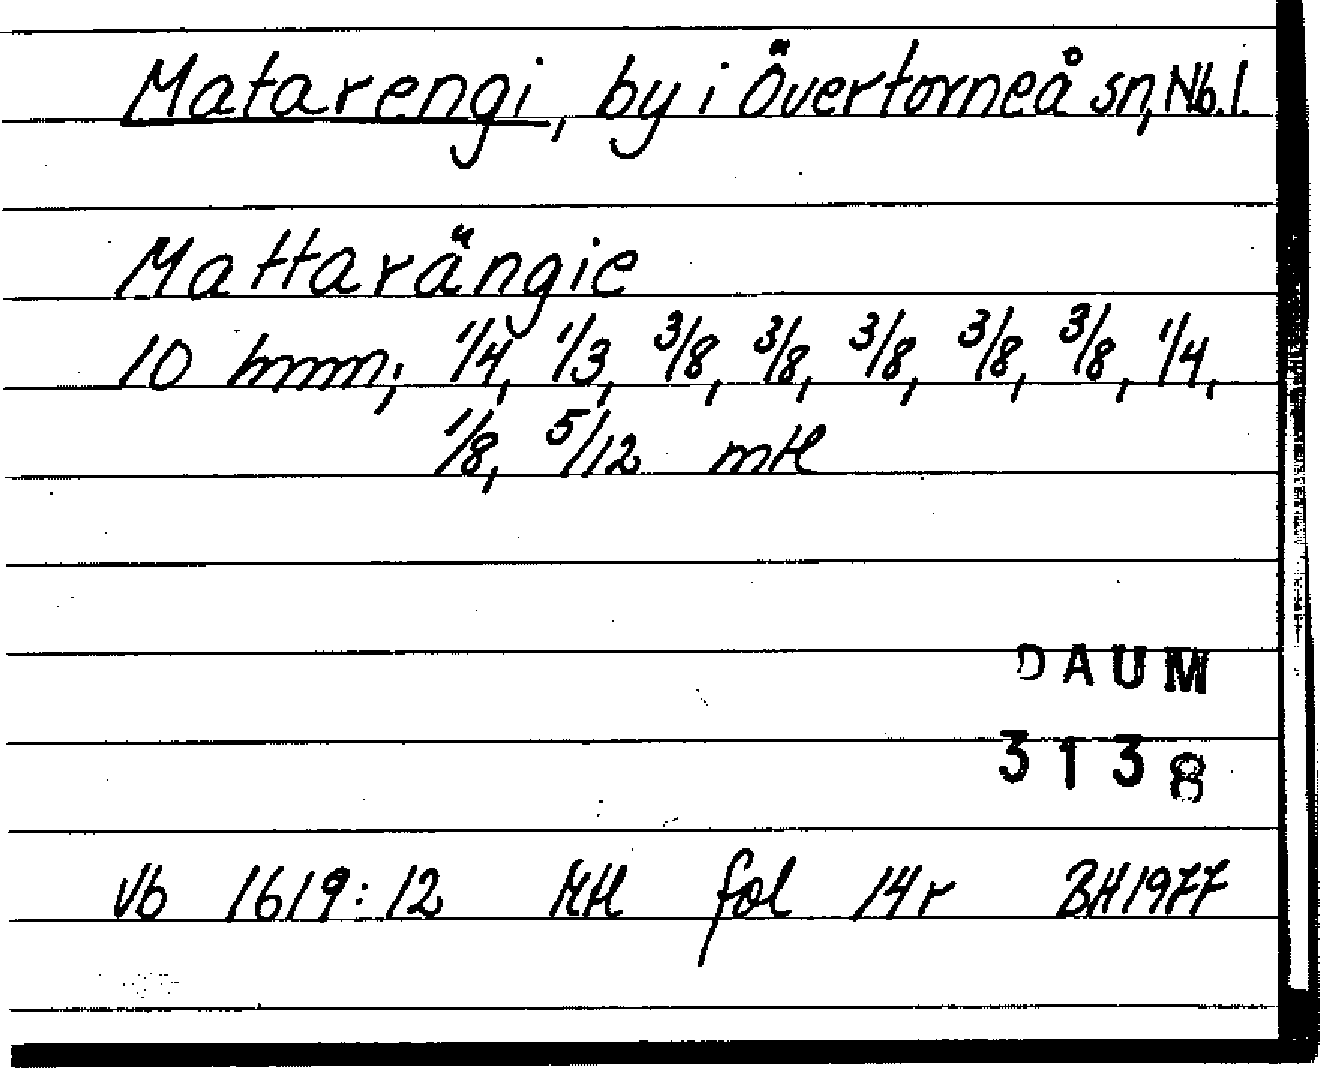 Matarengi, by i Övertorneå sn, Nb. l.
Mattarängie
10 hmm; 1/4, 1/3, 3/8, 3/8, 3/8, 3/8, 3/8, 1/4,
1/8, 5/12 mtl
DAUM
3138
Vb 1619:12 Mtl fol 14r BH1977